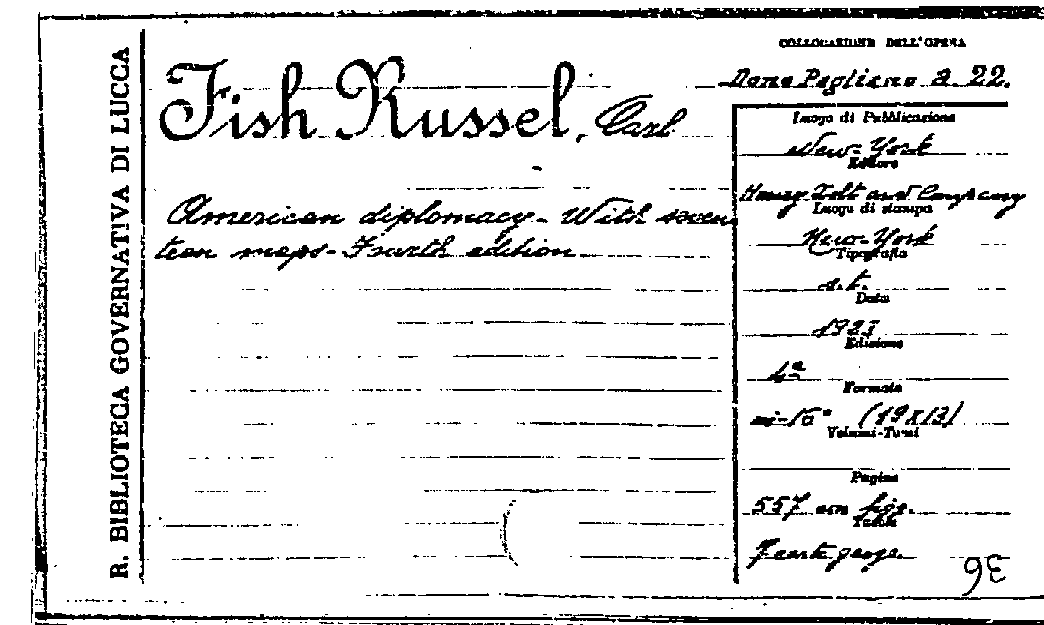 R. BIBLIOTECA GOVERNATIVA DI LUCCA
Fish Russel, Carl
American diplomacy - With seven
teen maps - Fourth edition
COLLOCAZIONE DELL'OPERA
Dono Pagliano a. 22.
Luogo di Pubblicazione
New-York
Editore
Henry Holt and Company
Luogo di stampa
New-York
Tipografia
s.t.
Data
1923
Edizione
4a
Formato
in-16° (19x13)
Volumi-Tomi
Pagine
557 con figg.
Tavole
7 carte geogr.
36